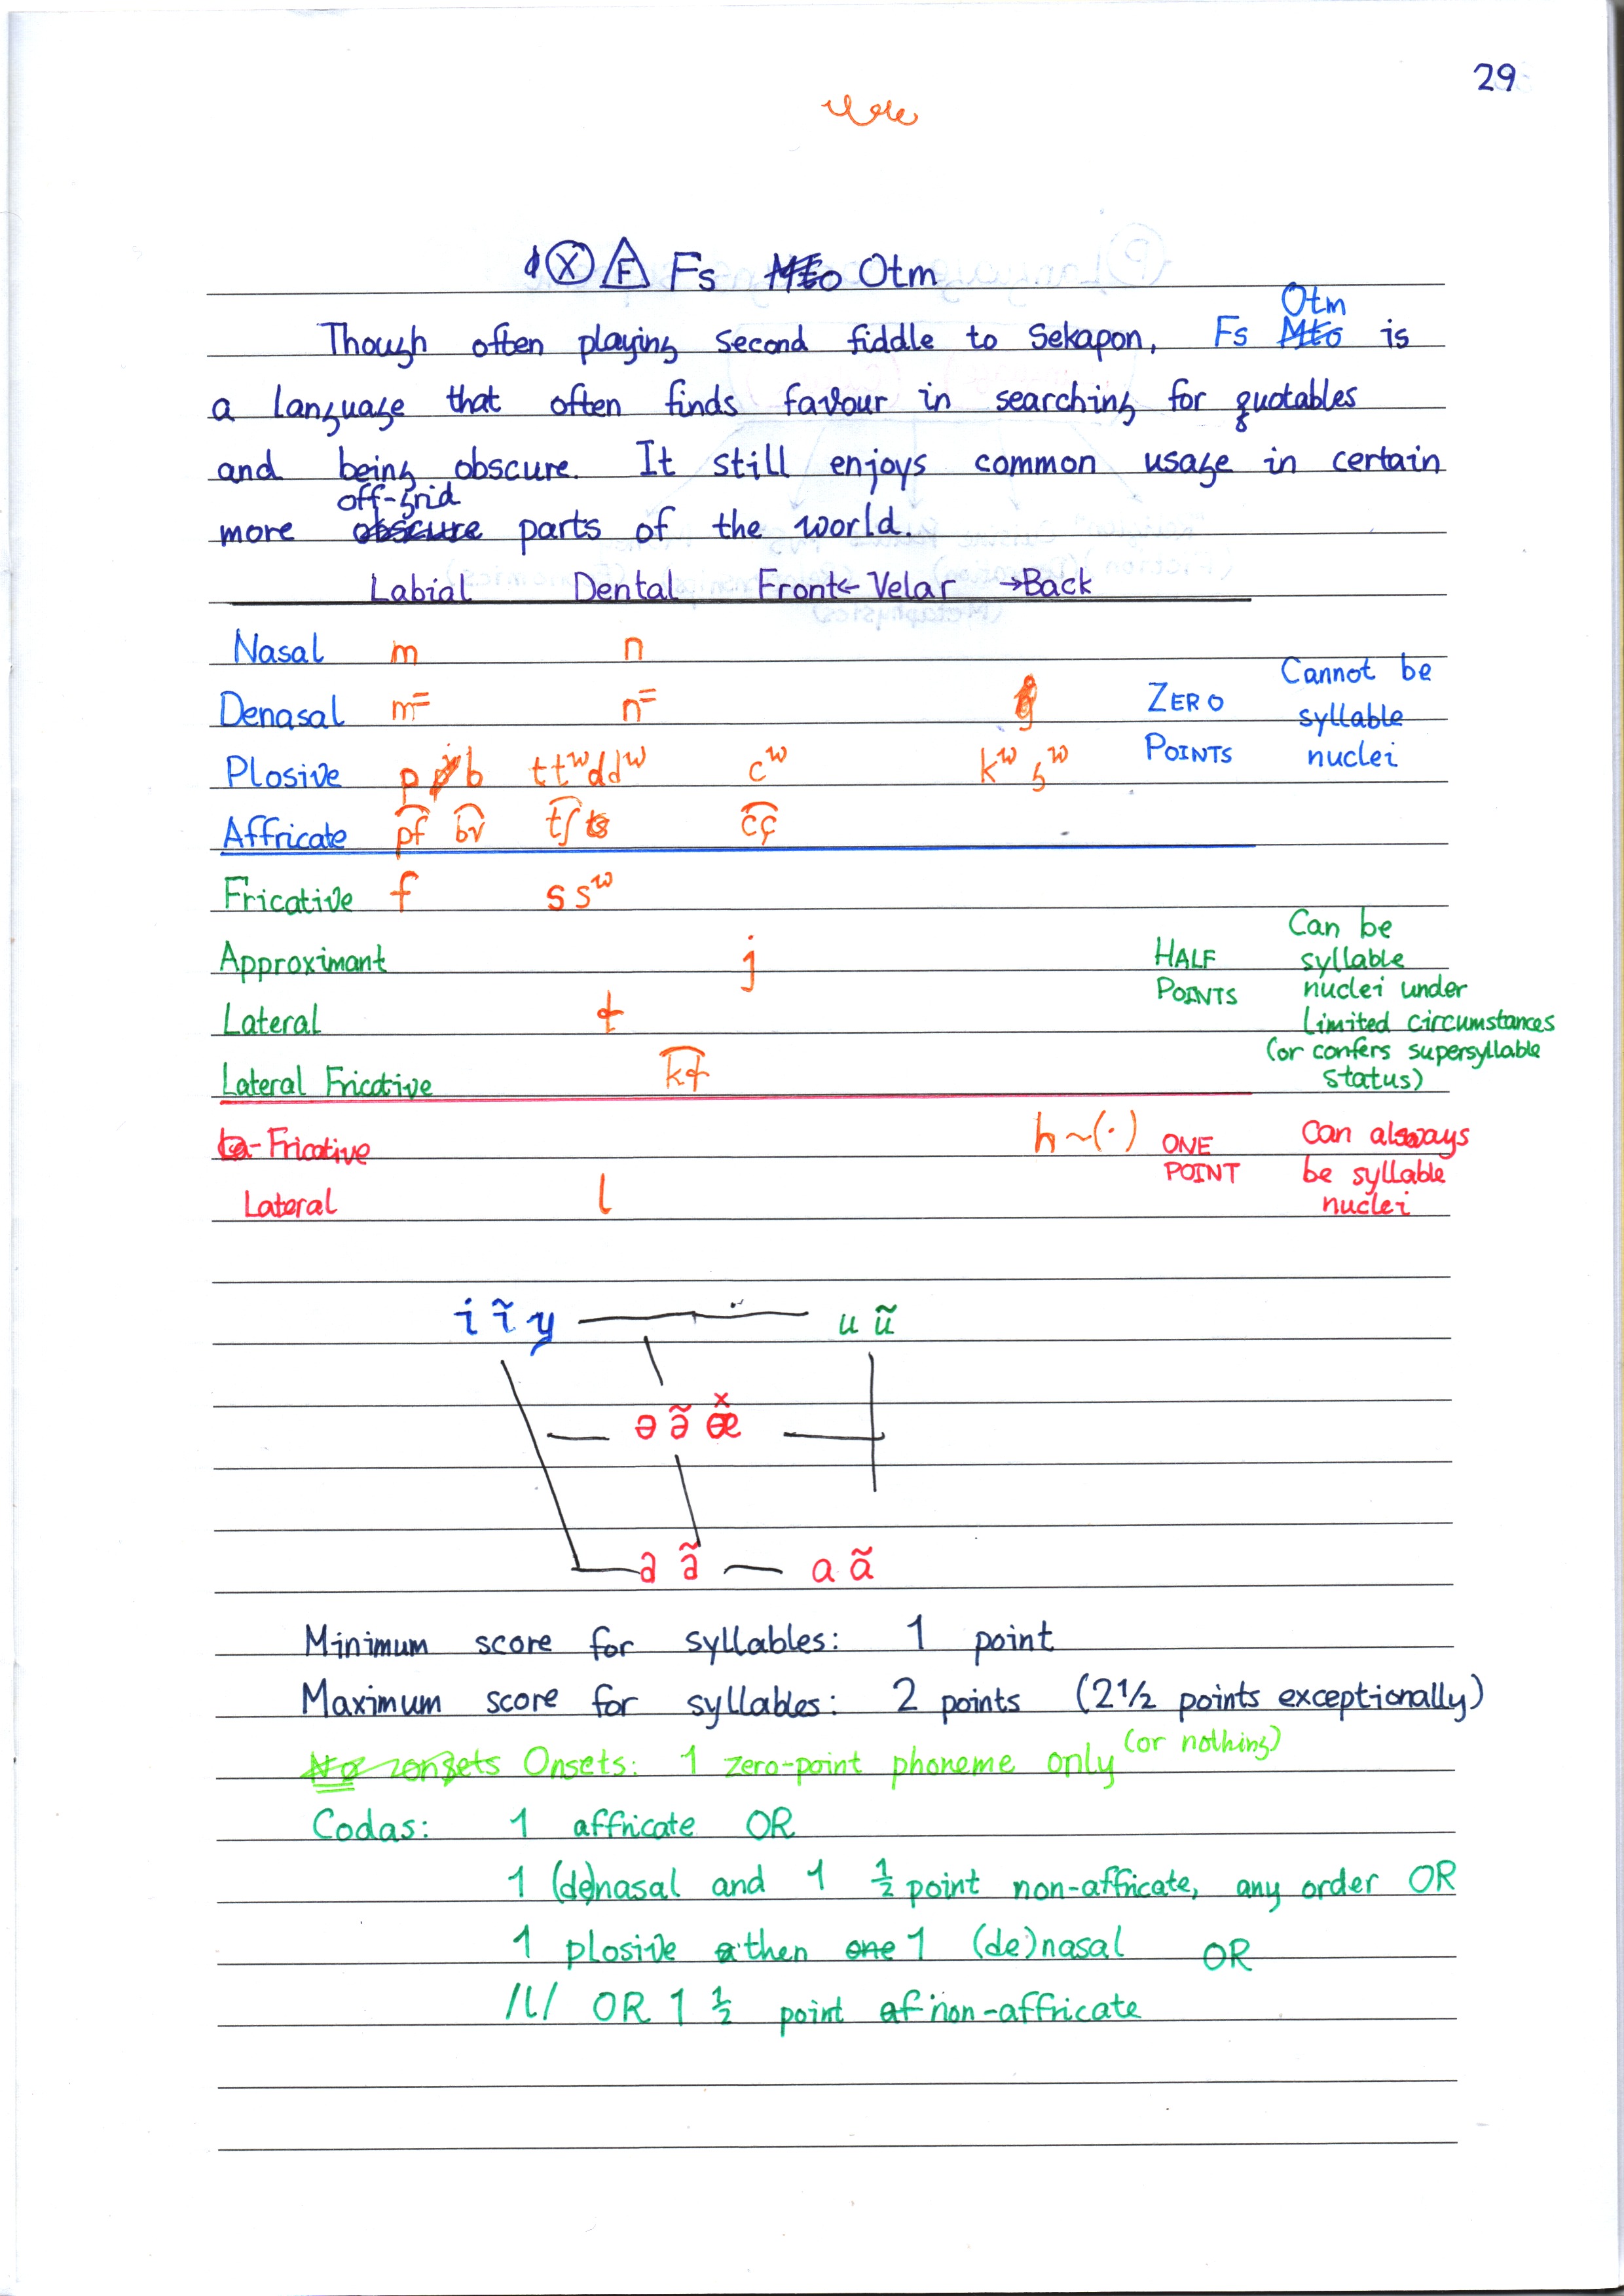 29
Fs Otm
Otm
Though often playing second fiddle to Sekapon, Fs Mto is
a language that often finds favour in searching for quotables
and being obscure. It still enjoys common usage in certain
off-grid
more obscure parts of the world.
Labial Dental Front← Velar →Back
Nasal m n
Denasal m⁼ n⁼
Plosive p b t tʷ d dʷ cʷ kʷ gʷ
ZERO POINTS
Cannot be
syllable
nuclei
Affricate p͡f b͡v t͡ʃ c͡ç
Fricative f s sʷ
Approximant j
Lateral ɬ
Lateral Fricative k͡ɬ
HALF
POINTS
Can be
syllable
nuclei under
limited circumstances
(or confers supersyllable
status)
Fricative h~(·)
Lateral l
ONE
POINT
Can always
be syllable
nuclei
i ĩ y u ũ
ə ə̃
a ã
Minimum score for syllables: 1 point
Maximum score for syllables: 2 points (2½ points exceptionally)
Onsets: 1 zero-point phoneme only (or nothing)
Codas: 1 affricate OR
1 (de)nasal and 1 ½ point non-affricate, any order OR
1 plosive then 1 (de)nasal OR
/l/ OR 1 ½ point non-affricate